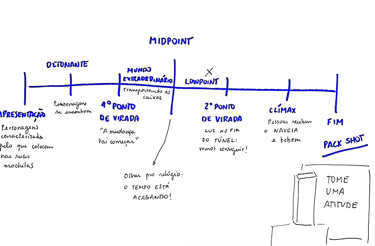 MIDPOINT
DETONANTE
MUNDO
EXTRAORDINÁRIO
Transportando as
caixas
LOWPOINT
X
APRESENTAÇÃO
Personagens
pelo que colocam
nas suas
mochilas
Personagens
se encontram
DE VIRADA
"A mudança
vai começar"
2º PONTO
DE VIRADA
LUZ NO FIM
DO TÚNEL:
vamos conseguir!
CLÍMAX
Pessoas recebem
e bebem
FIM
PACK SHOT
Olhar pro relógio:
O TEMPO ESTÁ
ACABANDO!
TOME
UMA
ATITUDE